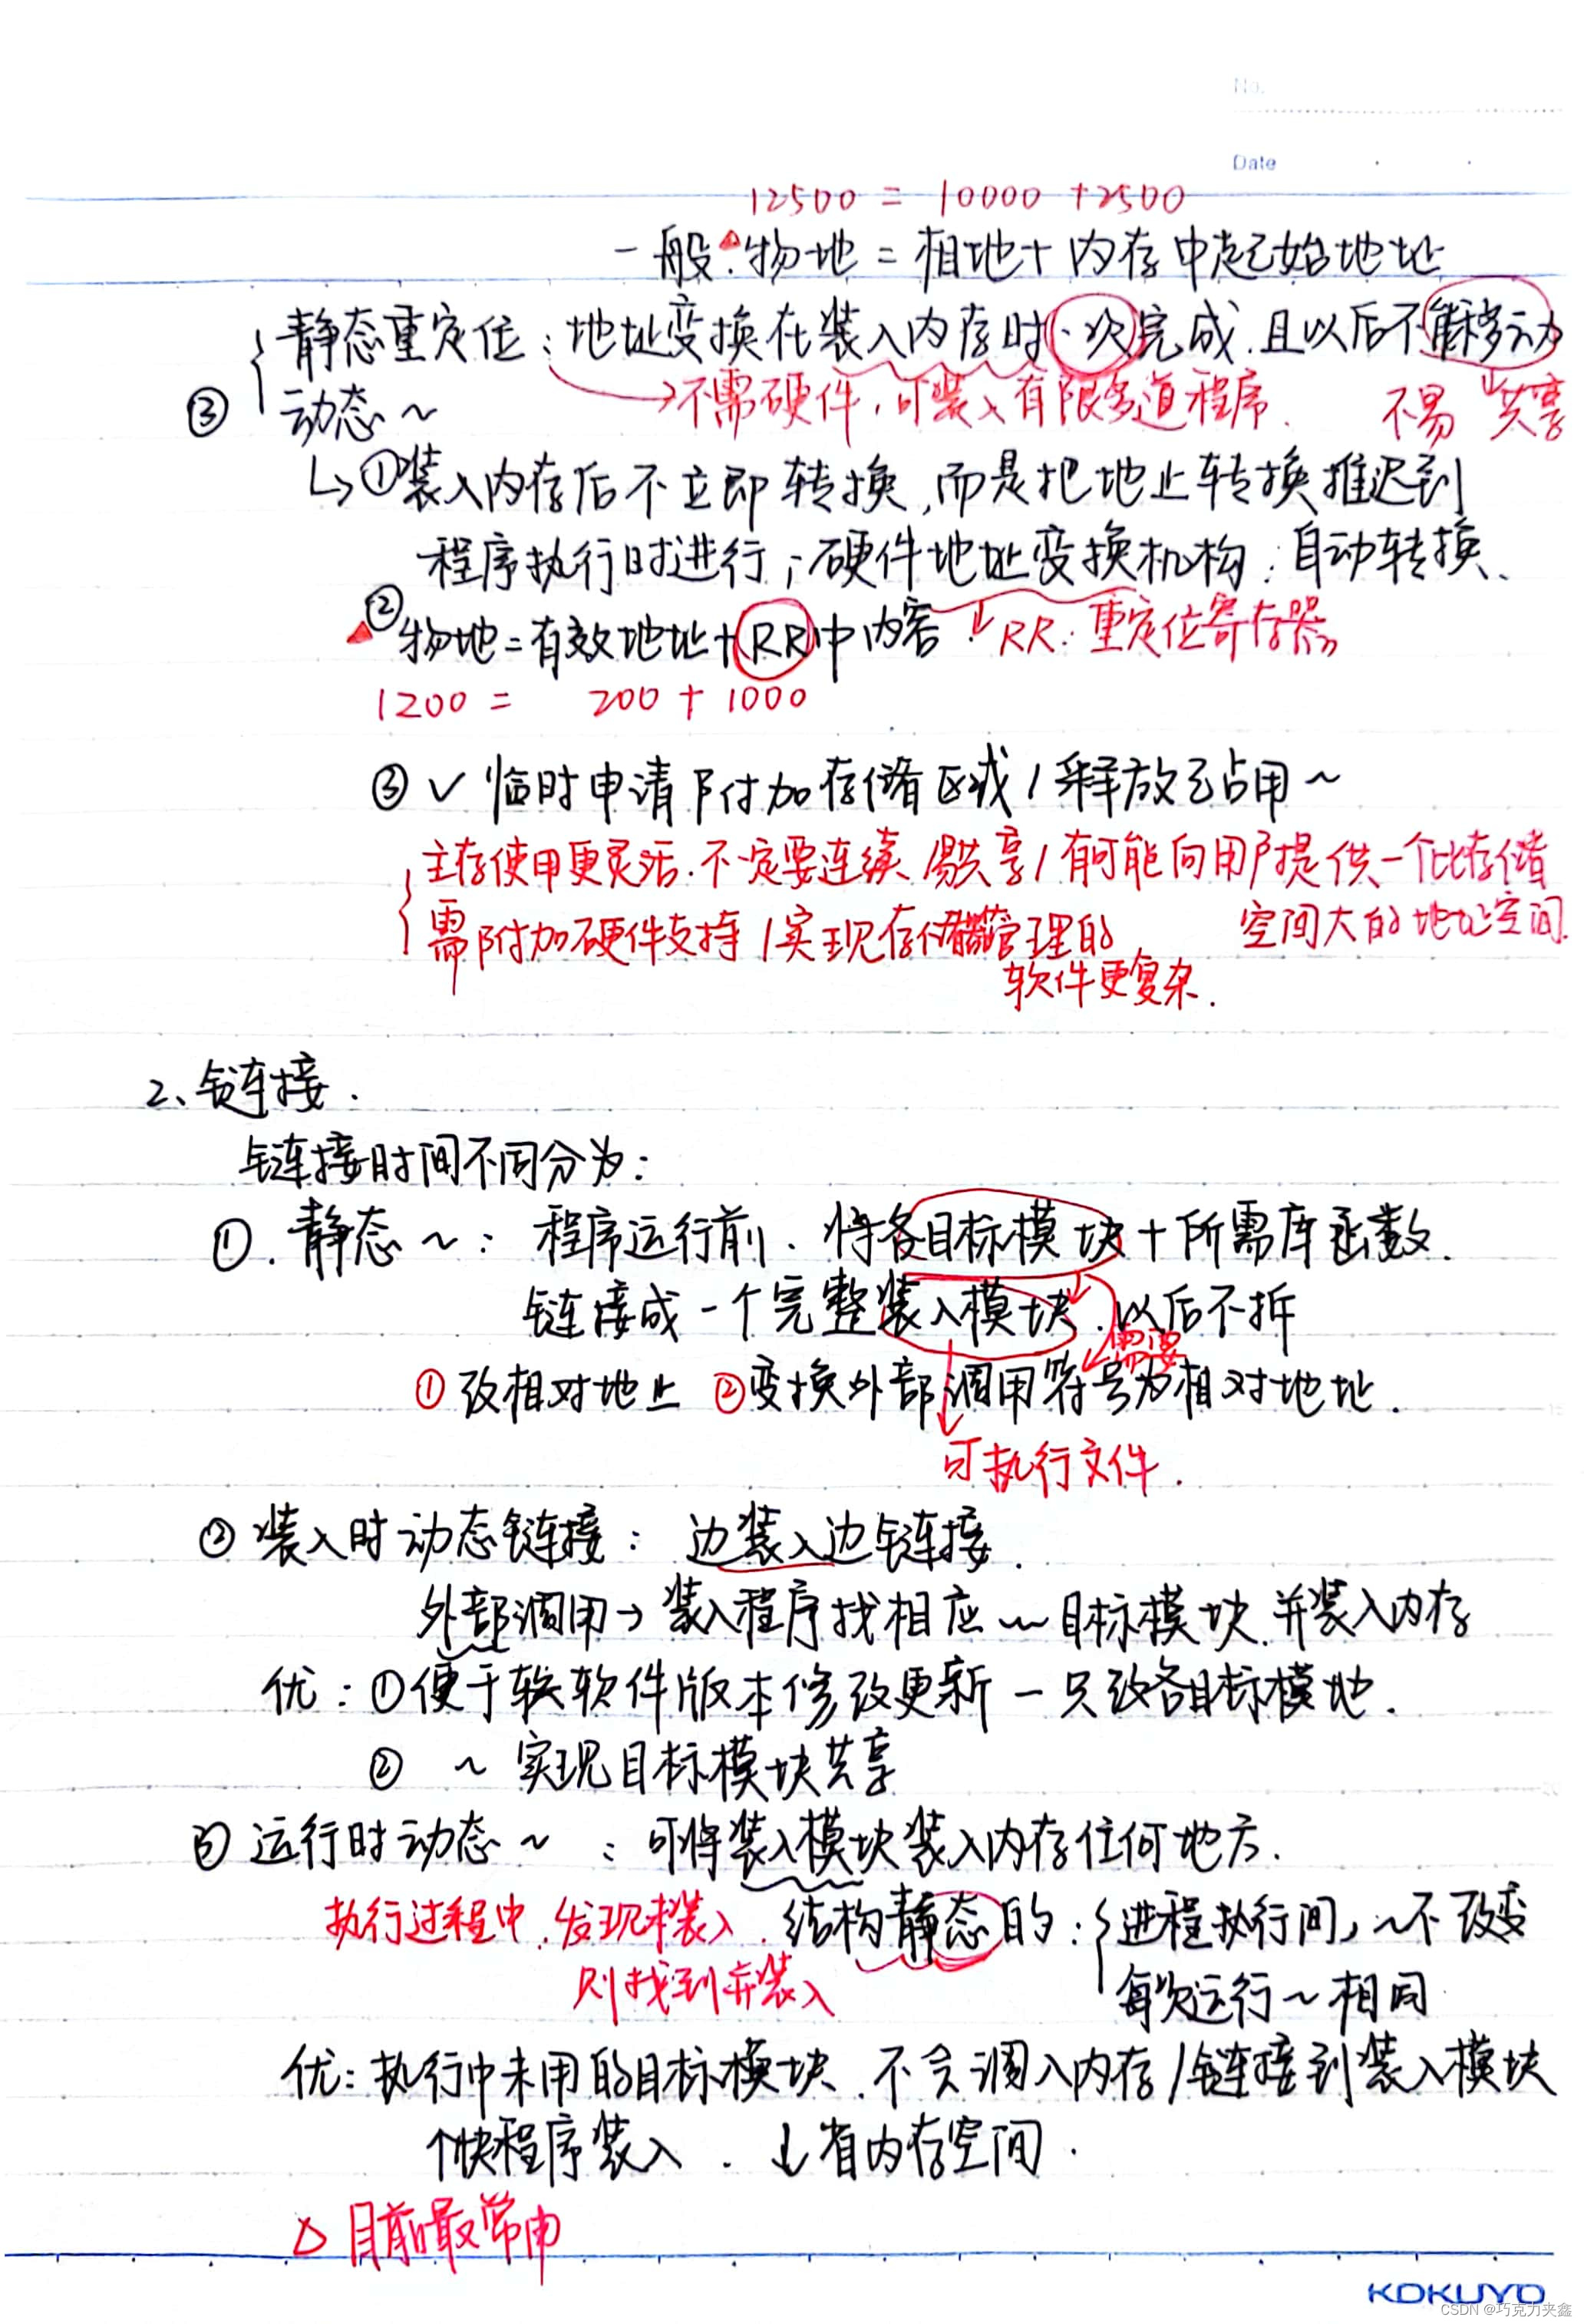 No.
Date
12500 = 10000 +2500
一般:物地 = 相地+内存中起始地址
静态重定位:地址变换在装入内存时一次完成.且以后不能移动
→不需硬件,可装入有限多道程序. 不易共享
③ 动态~
↳①装入内存后不立即转换,而是把地止转换推迟到
程序执行时进行;硬件地址变换机构:自动转换.
②物地=有效地址+RR中内容 ↓RR:重定位寄存器
1200 = 200 + 1000
③ ✓临时申请附加存储区域/释放已占用~
主存使用更灵活.不一定要连续.易共享/有可能向用户提供一个比存储
空间大的地址空间.
需附加硬件支持/实现存储器管理的
软件更复杂.
2、链接.
链接时间不同分为:
①.静态~: 程序运行前、将各目标模块+所需库函数.
链接成一个完整装入模块.以后不拆
需要
①改相对地止 ②变换外部调用符号为相对地址.
可执行文件.
②装入时动态链接: 边装入边链接.
外部调用→装入程序找相应~目标模块.并装入内存
优:①便于软件版本修改更新一只改各目标模地.
② ~实现目标模块共享
③运行时动态~ :可将装入模块装入内存任何地方.
执行过程中.发现未装入. 结构静态的:进程执行间,~不改变
则找到并装入 每次运行~相同
优:执行中未用的目标模块.不会调入内存/链接到装入模块
↑快程序装入. ↓省内存空间.
△ 目前最常用
KOKUYO
CSDN @巧克力夹鑫